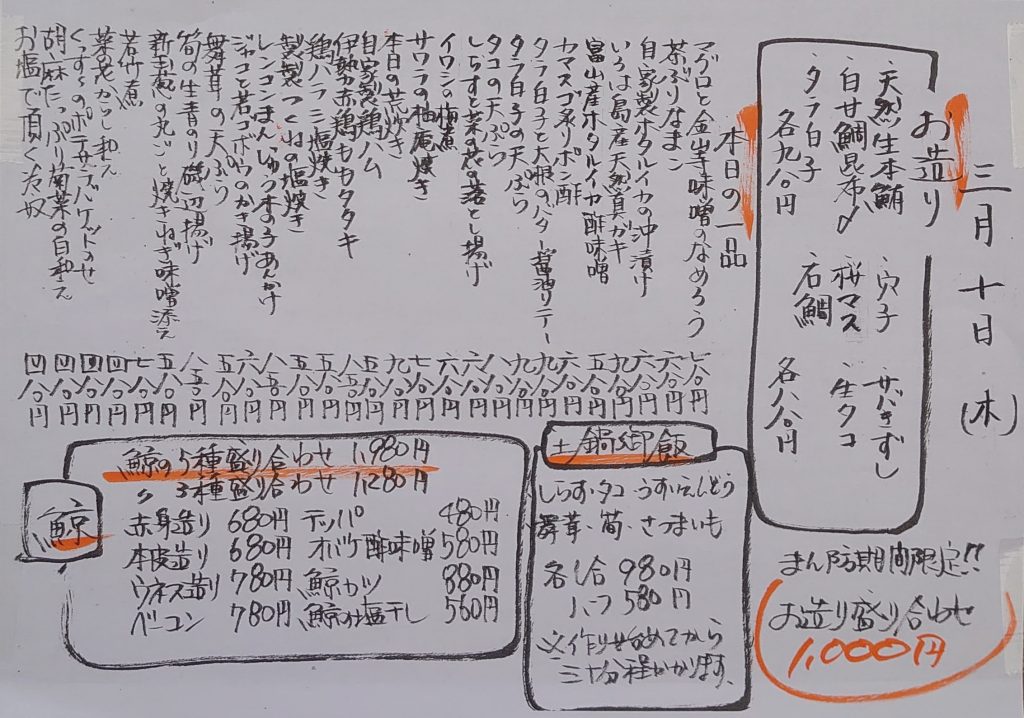 三月十日(木)
お造り
天然生本鮪 穴子 サバきずし
白甘鯛昆布〆 桜マス 生タコ
タラ白子 石鯛
各九八〇円 各八八〇円
まん防期間限定!!
お造り盛り合わせ
1,000円
本日の一品
マグロと金山寺味噌のなめろう 七八〇円
茶ぶりなまこ 六八〇円
自家製ホタルイカの沖漬け 六八〇円
いろは島産天然真ガキ 九八〇円
富山産ホタルイカ酢味噌
カマスゴ炙りポン酢 六八〇円
タラ白子と大根のバター醤油ソテー 九八〇円
タラ白子の天ぷら 九八〇円
タコの天ぷら 八八〇円
しらすと菜の花の落とし揚げ 六八〇円
イワシの梅煮 六八〇円
サワラの柚庵焼き 七八〇円
本日の荒炊き 九八〇円
自家製鶏ハム 五八〇円
伊勢赤鶏ももタタキ 八五〇円
鶏ハラミ塩焼き 五八〇円
製つくねの塩焼き 五八〇円
レンコンまんじゅう木の子あんかけ 八五〇円
ジャコと若ゴボウのかき揚げ 六八〇円
舞茸の天ぷら 五八〇円
筍の生青のり磯辺揚げ 八五〇円
新玉葱の丸ごと焼きねぎ味噌添え 五八〇円
若竹煮 七八〇円
菜の花からし和え 四八〇円
くっすーのポテサラバケットのせ 四八〇円
胡麻たっぷり菊菜の白和え 四八〇円
お塩で頂く冷奴 四八〇円
土鍋御飯
しらす・タコ・うすいえんどう
舞茸・筍・さつまいも
各一合 980円
ハーフ 580円
※作り始めてから
三十分程かかります。
鯨
鯨の5種盛り合わせ 1,980円
〃 3種盛り合わせ 1,280円
赤身造り 680円 テッパ 480円
本皮造り 680円 オバケ酢味噌 580円
ウネス造り 780円 鯨カツ 880円
ベーコン 780円 鯨の塩干し 560円